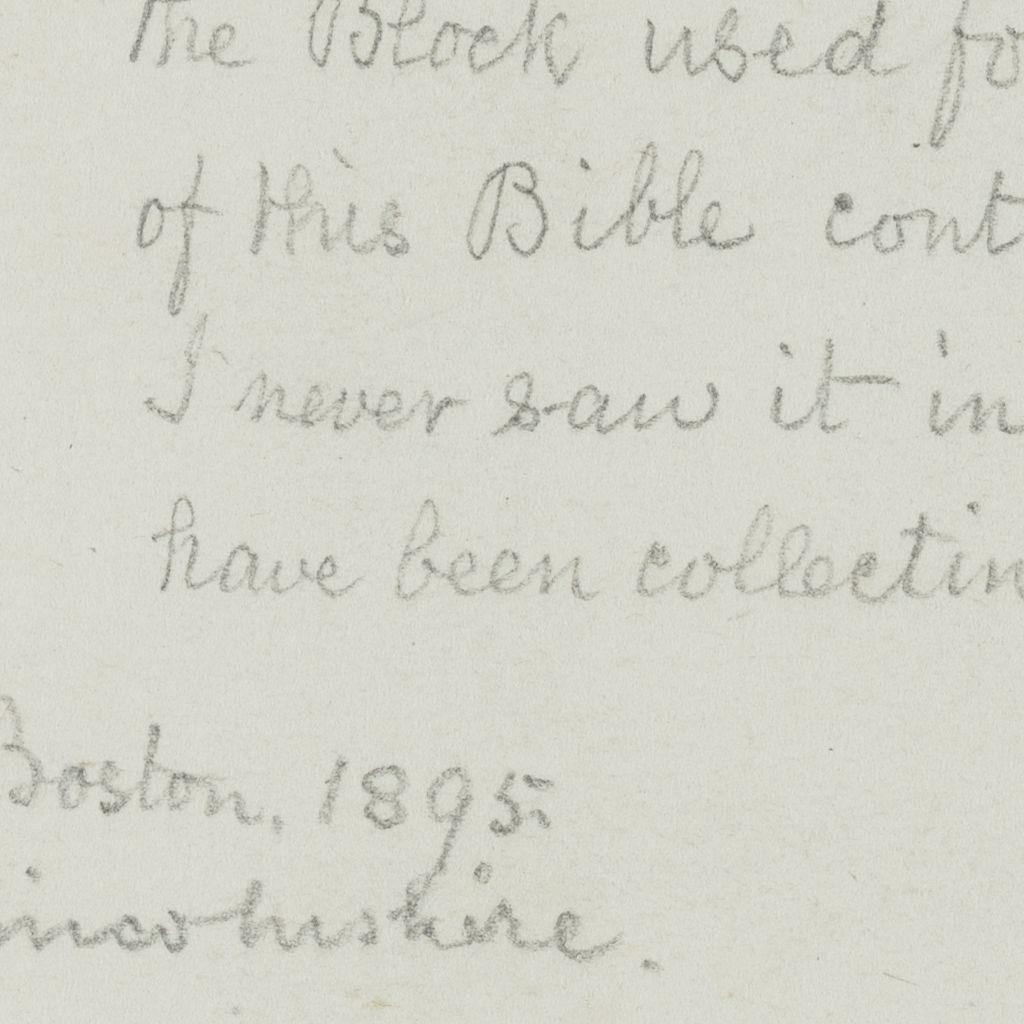 The Block used fo
of this Bible cont
I never saw it in
have been collectin
Boston. 1895.
incolnshire.